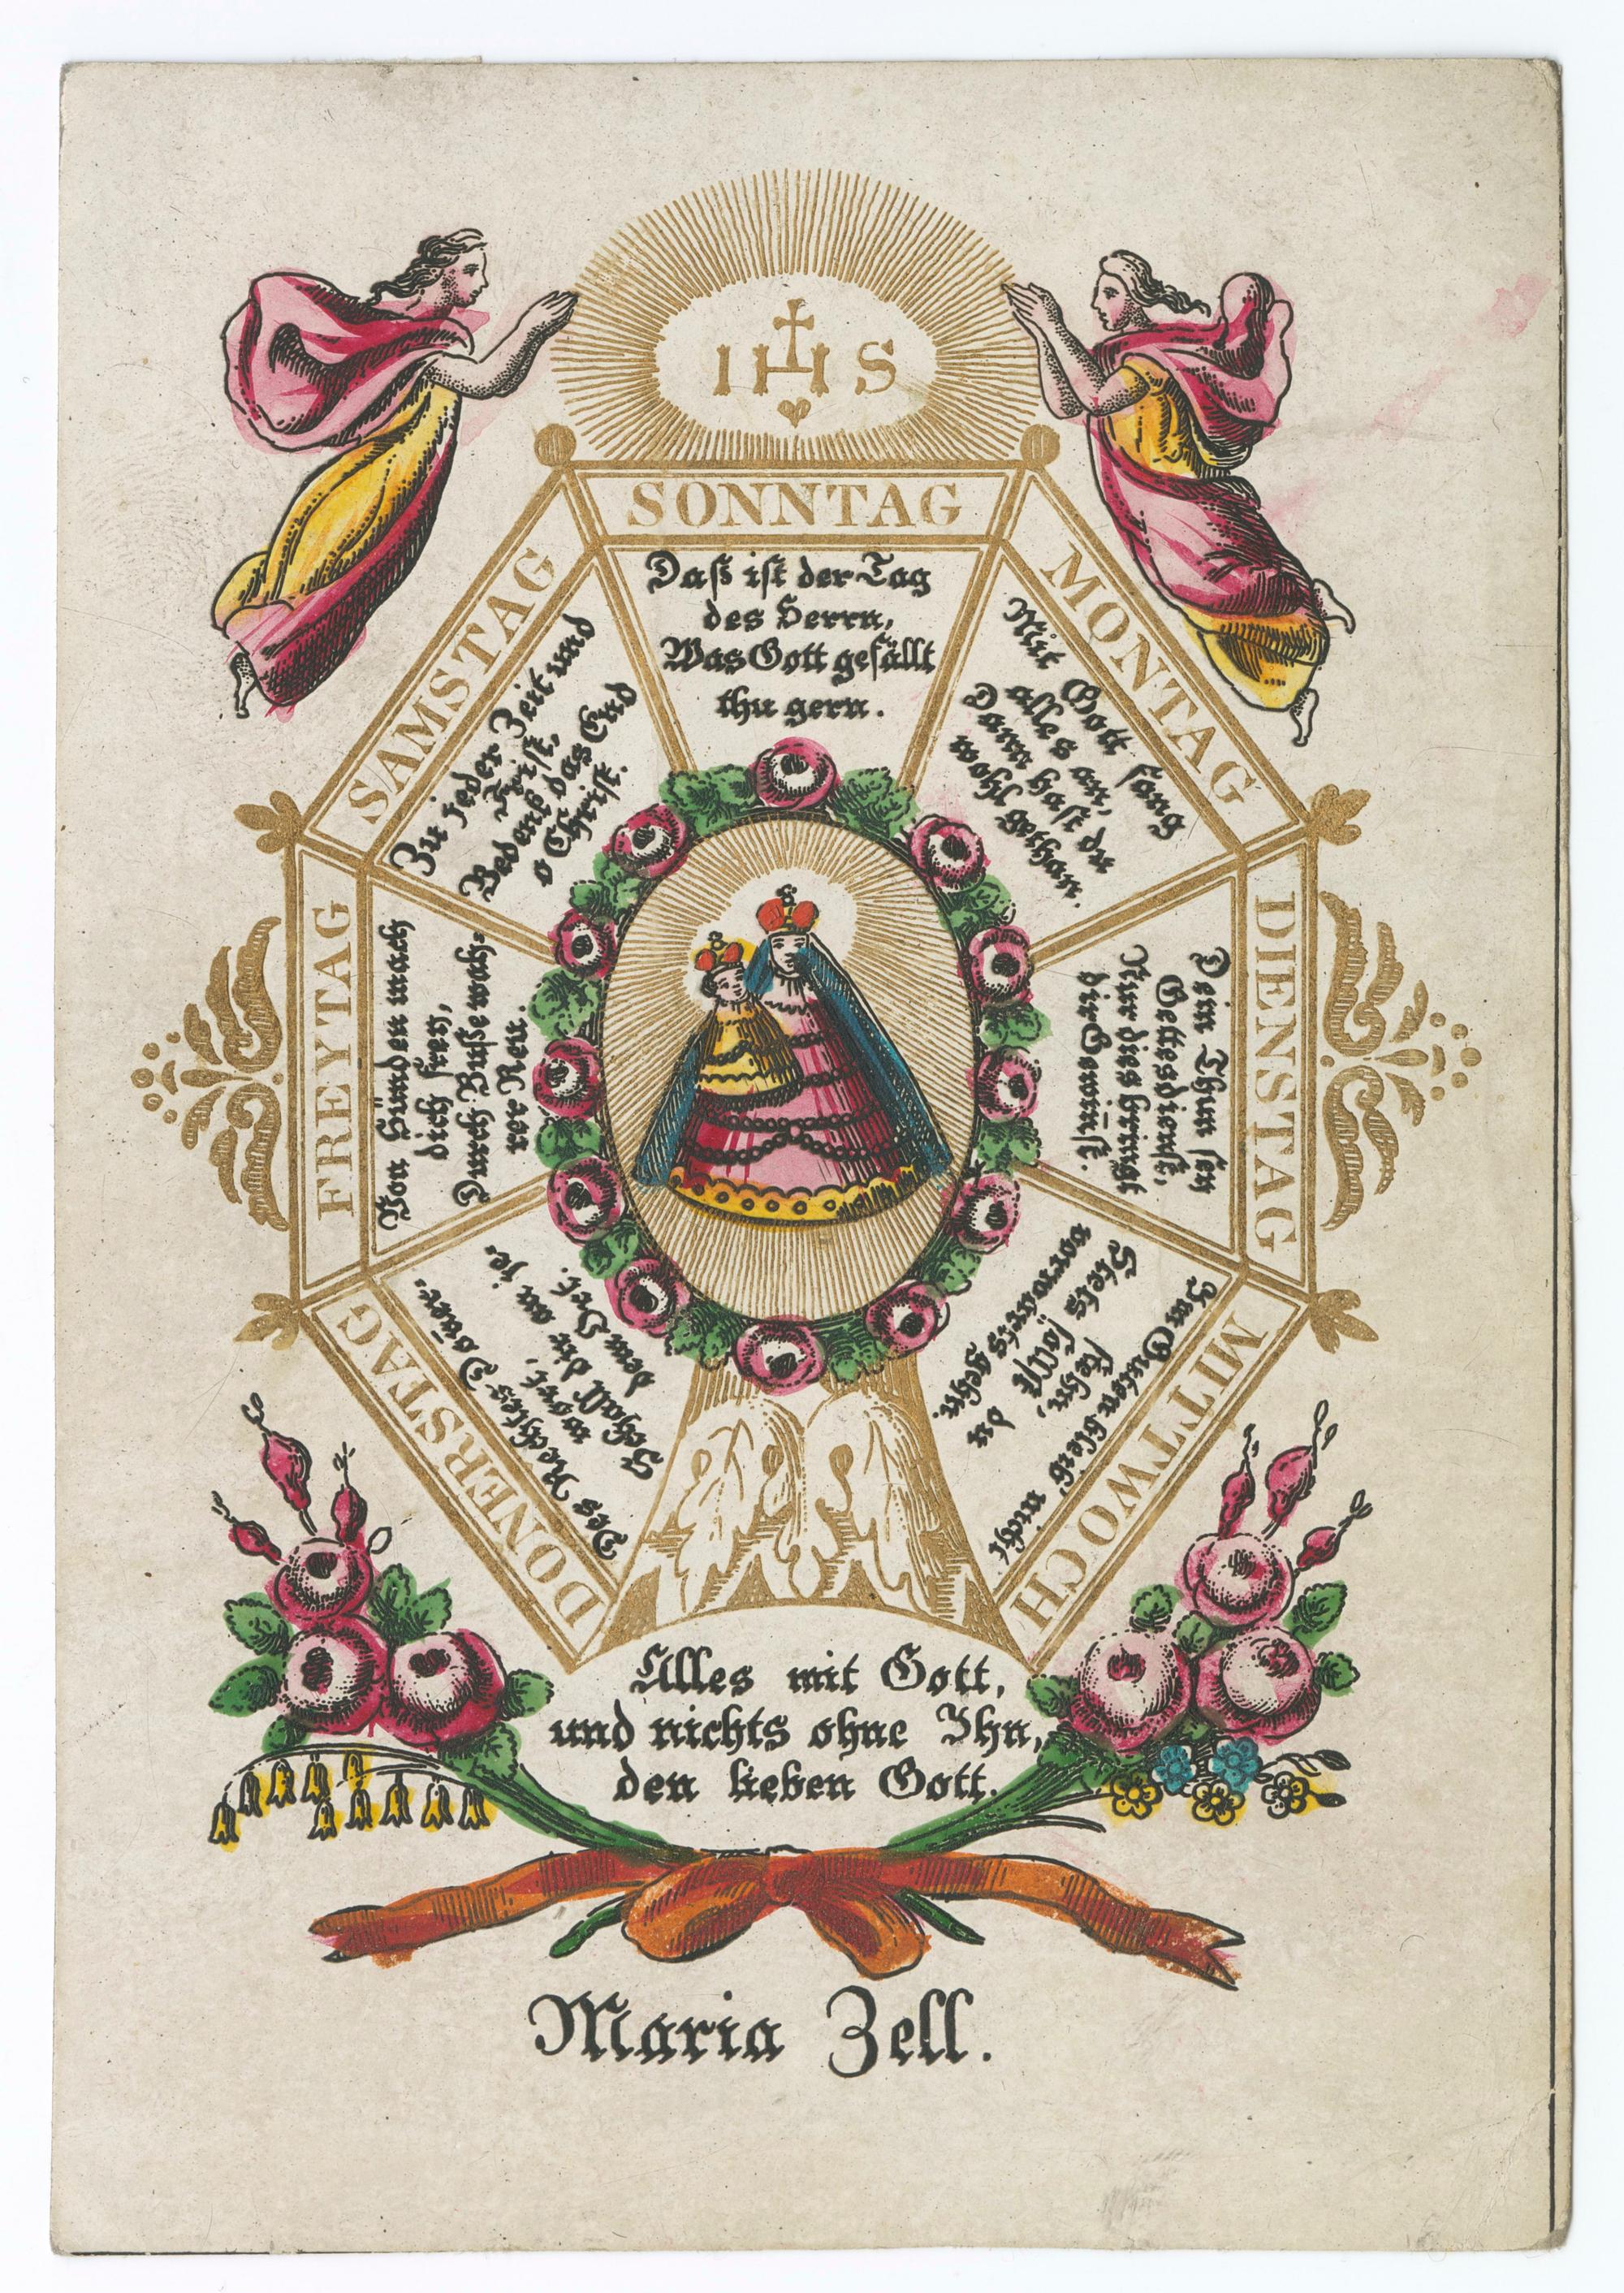 IHS
SONNTAG
Daß ist der Tag
des Herrn,
Was Gott gefällt
thu gern.
MONTAG
Mit Gott fang
alles an,
Dann hast du
wohl gethan.
DIENSTAG
Dein Thun sey
Gottesdienst,
Nur dies bringt
dir Gewin̄st.
MITTWOCH
Im Guten bleib' nicht
Stets stehn,
sollst du
vorwärts gehn.
DONERSTAG
Des Rechtes Don̄er-
wort,
Schall dir an je-
dem Ort.
FREYTAG
Von Sünden mach
dich frey,
Durch Buße wah-
rer Reu.
SAMSTAG
Zu jeder Zeit und
Frist,
Bedenk das End
o Christ.
Alles mit Gott,
und nichts ohne Ihn,
den lieben Gott.
Maria Zell.